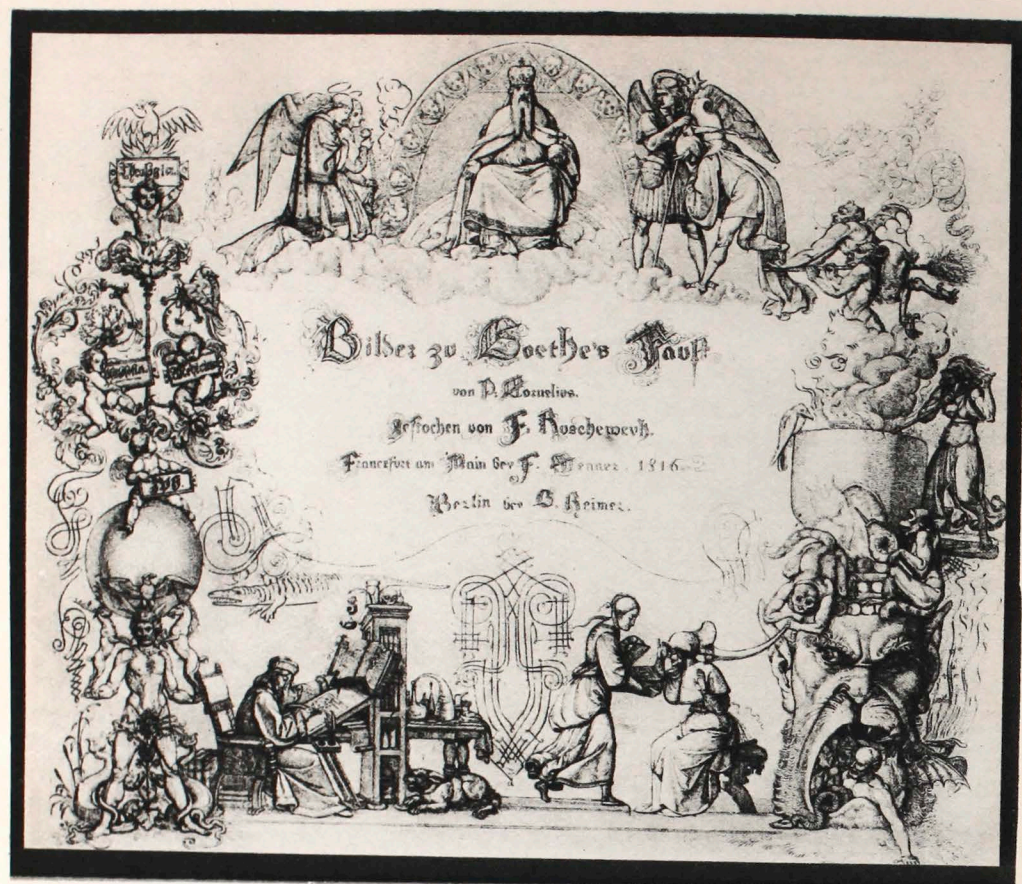 Theologia
Philosophia
Medicina
Jus
Bilder zu Goethe's Faust
von P. Cornelius.
gestochen von F. Ruscheweyh.
Francfurt am Main bey F. Wenner. 1816
Berlin bey G. Reimer.